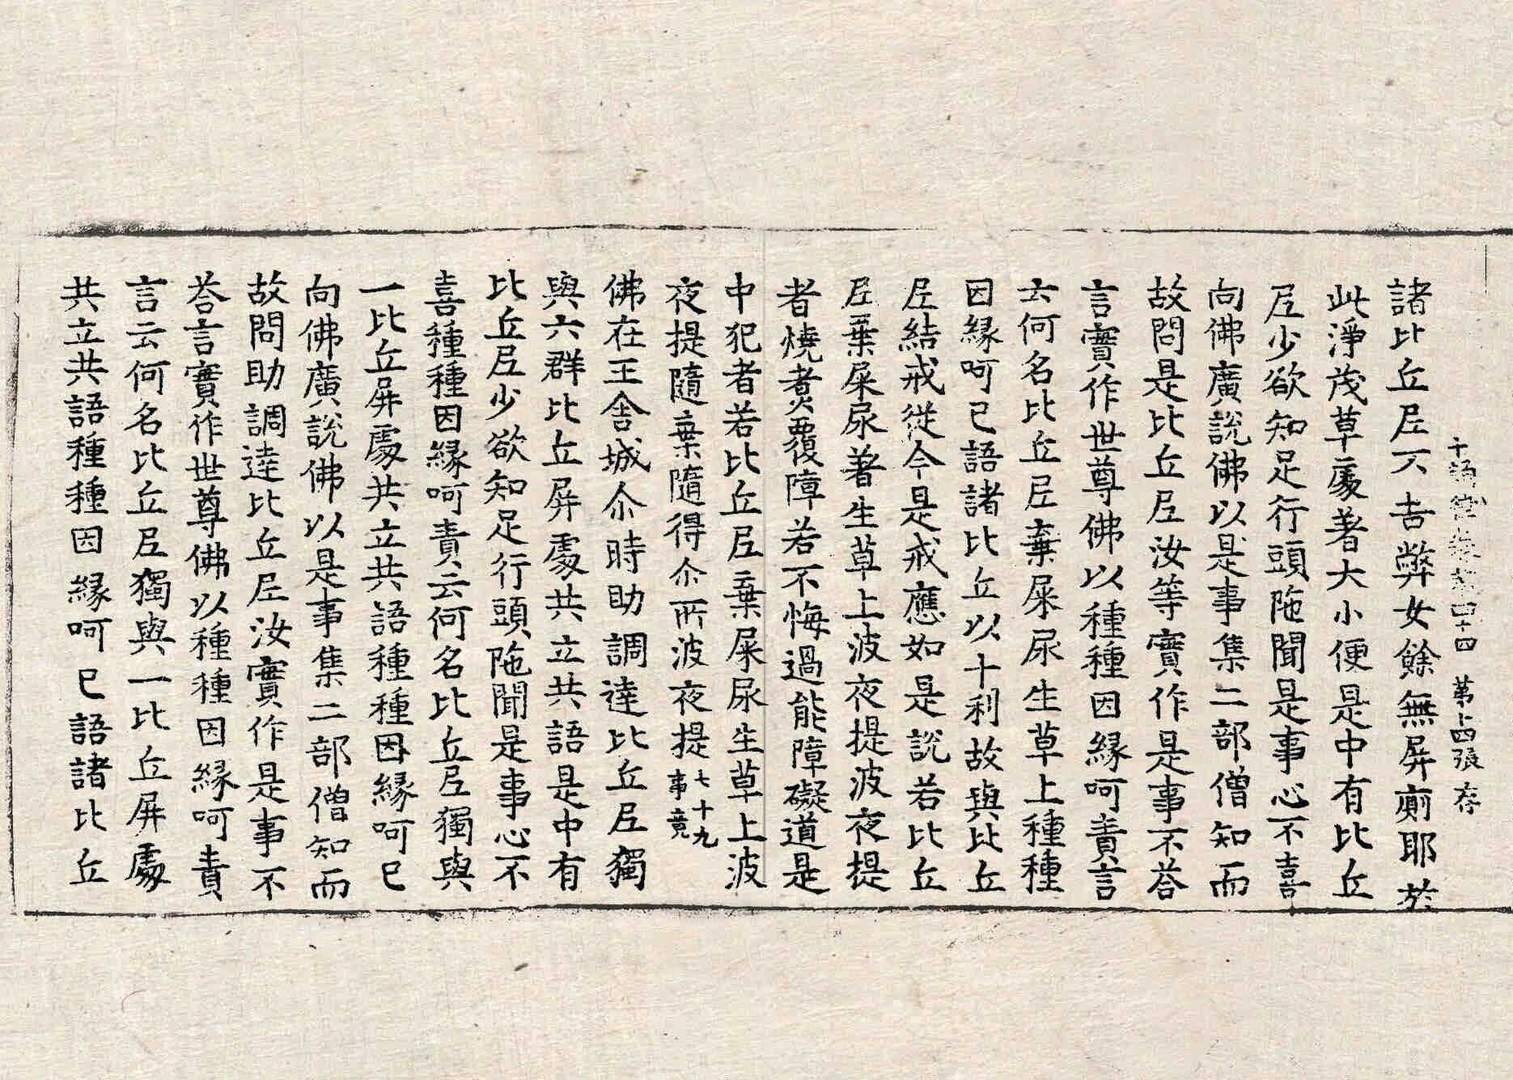 諸比丘尼不吉弊女餘無屏廁耶於
十誦律卷第四十四 第十四張 存
此淨茂草處著大小便是中有比丘
尼少欲知足行頭陁聞是事心不喜
向佛廣說佛以是事集二部僧知而
故問是比丘尼汝等實作是事不荅
言實作世尊佛以種種因緣呵責言
云何名比丘尼棄屎尿生草上種種
因緣呵已語諸比丘以十利故與比丘
尼結戒從今是戒應如是說若比丘
尼棄屎尿著生草上波夜提波夜提
者燒煑覆障若不悔過能障礙道是
中犯者若比丘尼棄屎尿生草上波
夜提隨棄隨得尒所波夜提七十九事竟
佛在王舍城尒時助調達比丘尼獨
與六群比丘屏處共立共語是中有
比丘尼少欲知足行頭陁聞是事心不
喜種種因緣呵責云何名比丘尼獨與
一比丘屏處共立共語種種因緣呵已
向佛廣說佛以是事集二部僧知而
故問助調達比丘尼汝實作是事不
荅言實作世尊佛以種種因緣呵責
言云何名比丘尼獨與一比丘屏處
共立共語種種因緣呵已語諸比丘